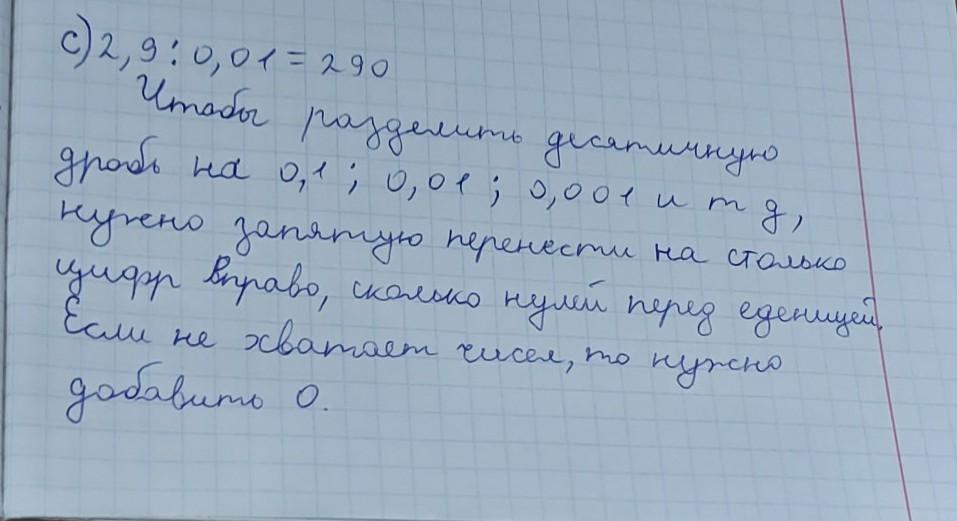 с) 2,9 : 0,01 = 290
Чтобы разделить десятичную
дробь на 0,1; 0,01; 0,001 и т д,
нужно запятую перенести на столько
цифр вправо, сколько нулей перед еденицей.
Если не хватает чисел, то нужно
добавить 0.